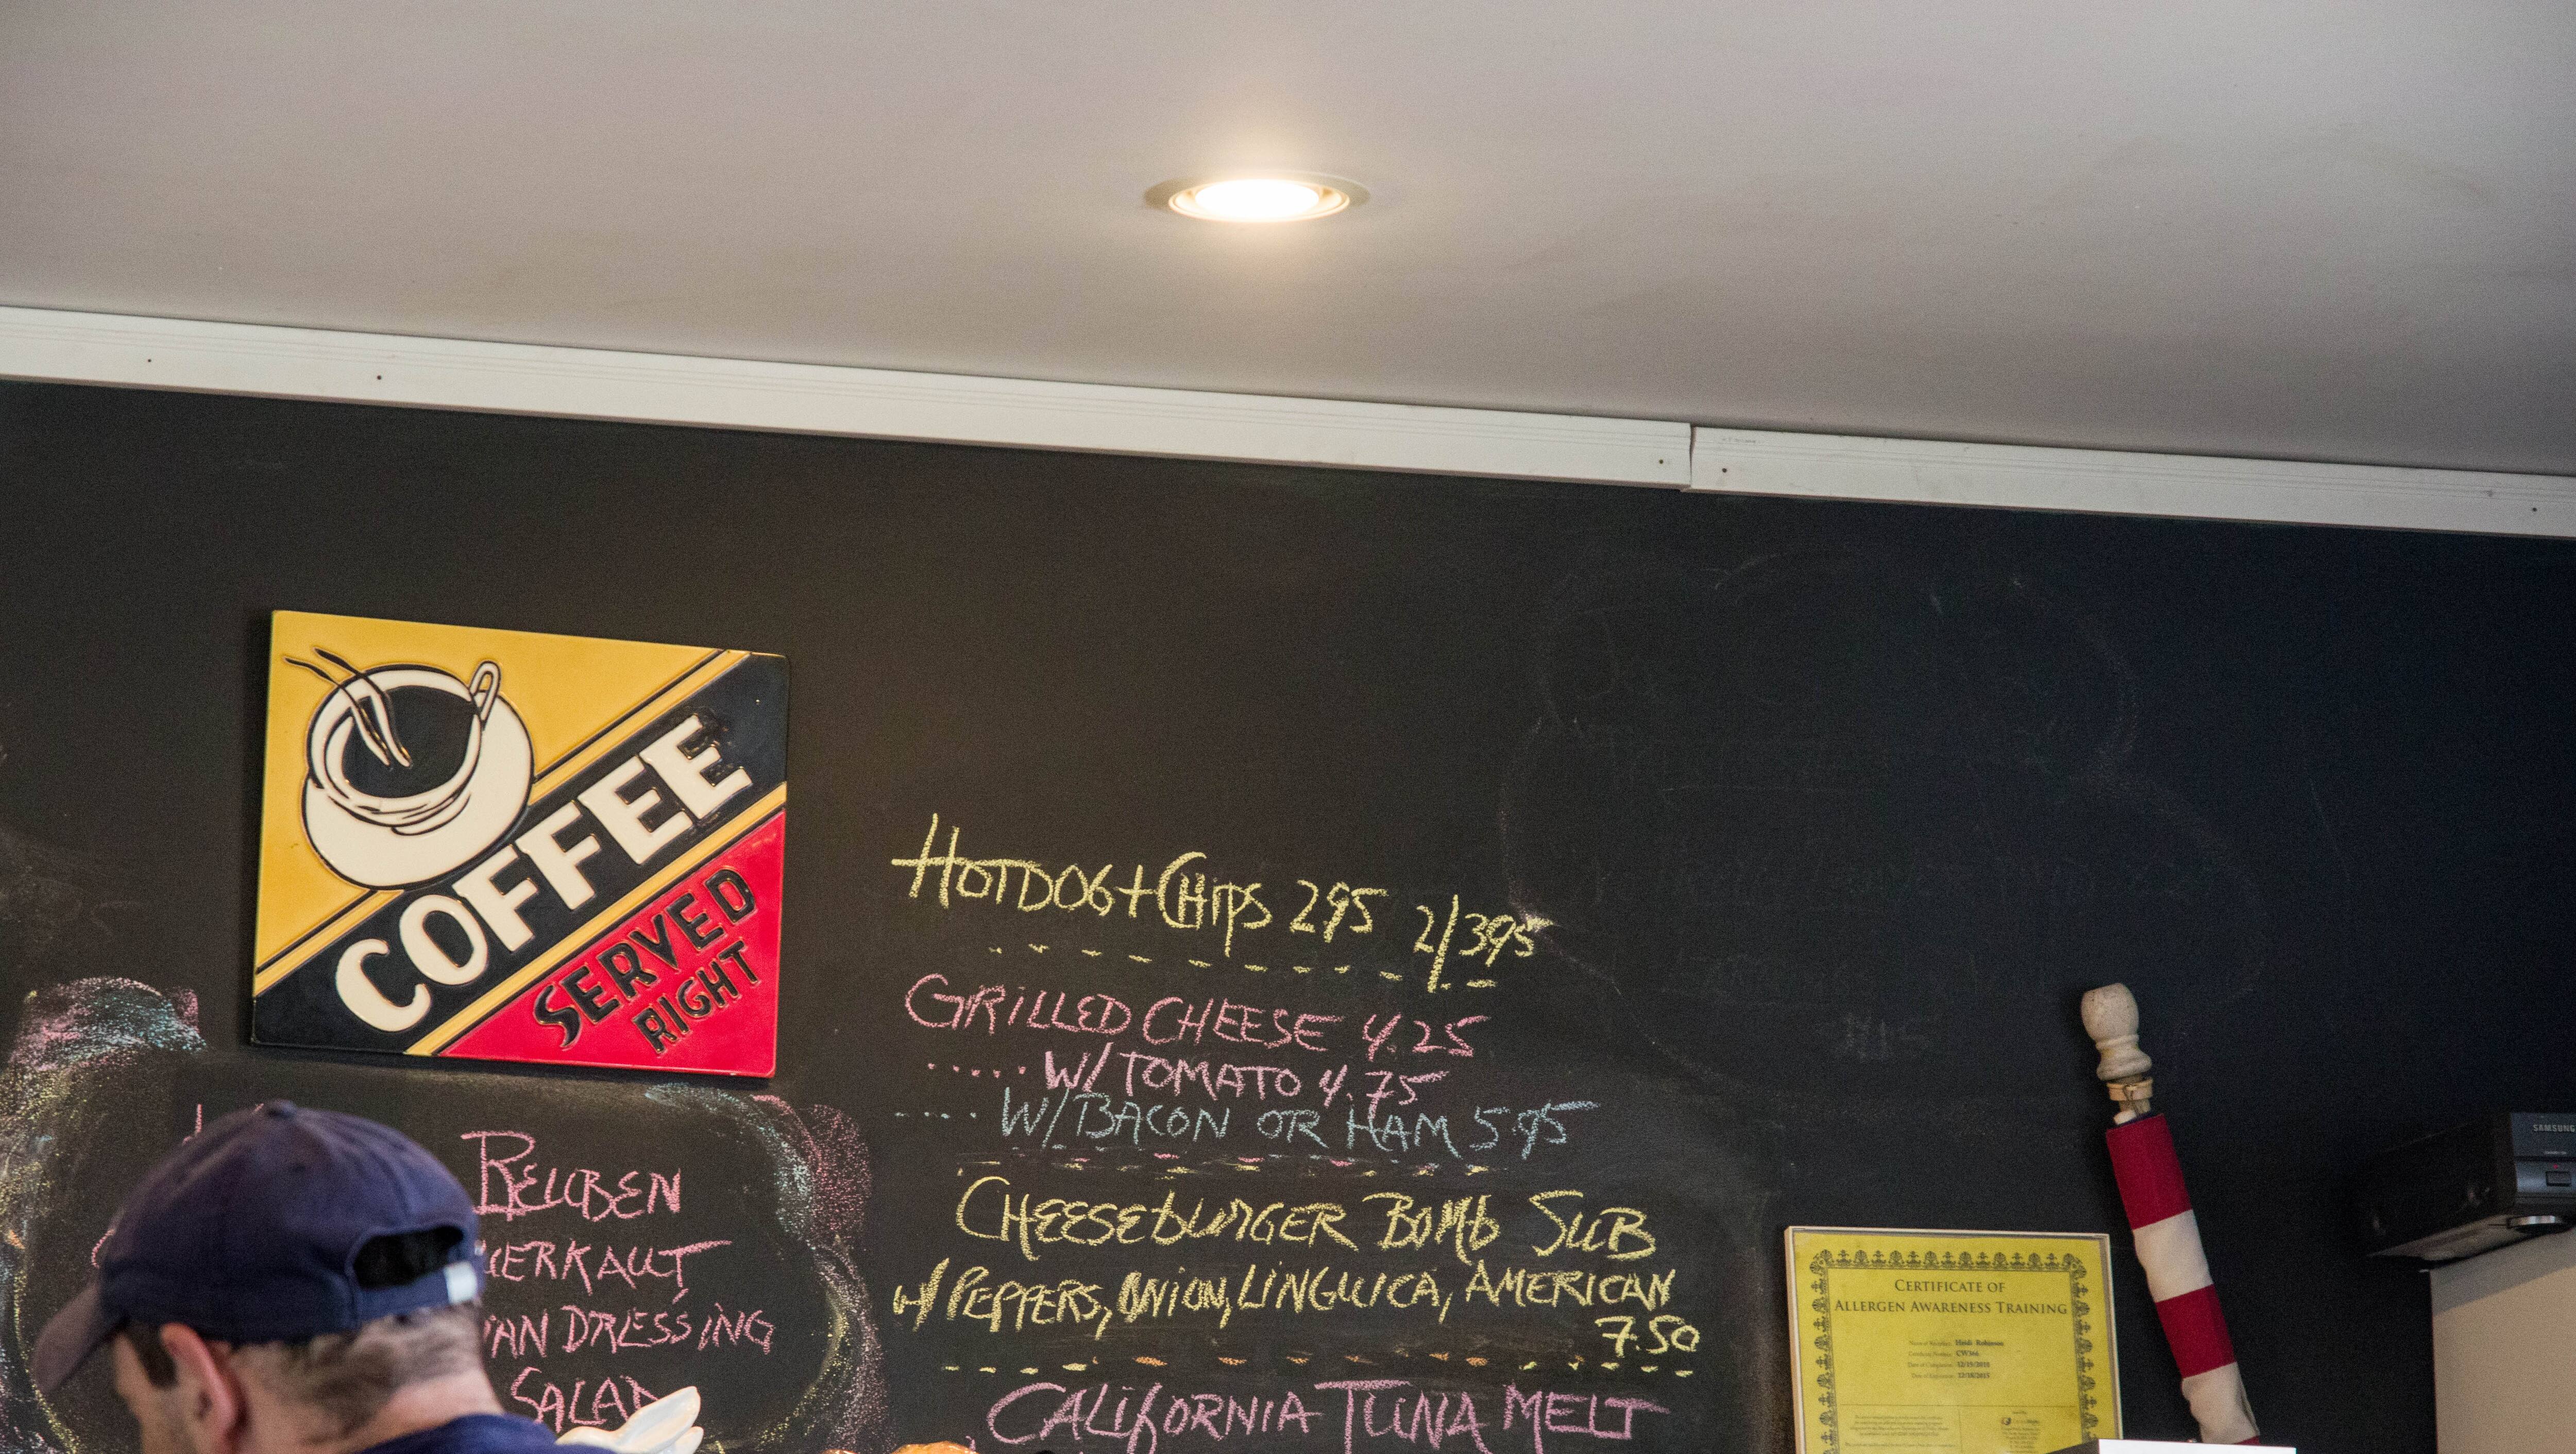 COFFEE
SERVED
RIGHT
REUBEN
DRESSING
SALAD
HOTDOG + CHIPS 2.95 2/3.95
GRILLED CHEESE 4.25
W/TOMATO 4.75
W/BACON OR HAM 5.95
CHEESEBURGER BOMB SUB
W/PEPPERS, ONION, LINGUICA, AMERICAN
7.50
CALIFORNIA TUNA MELT
CERTIFICATE OF
ALLERGEN AWARENESS TRAINING
SAMSUNG